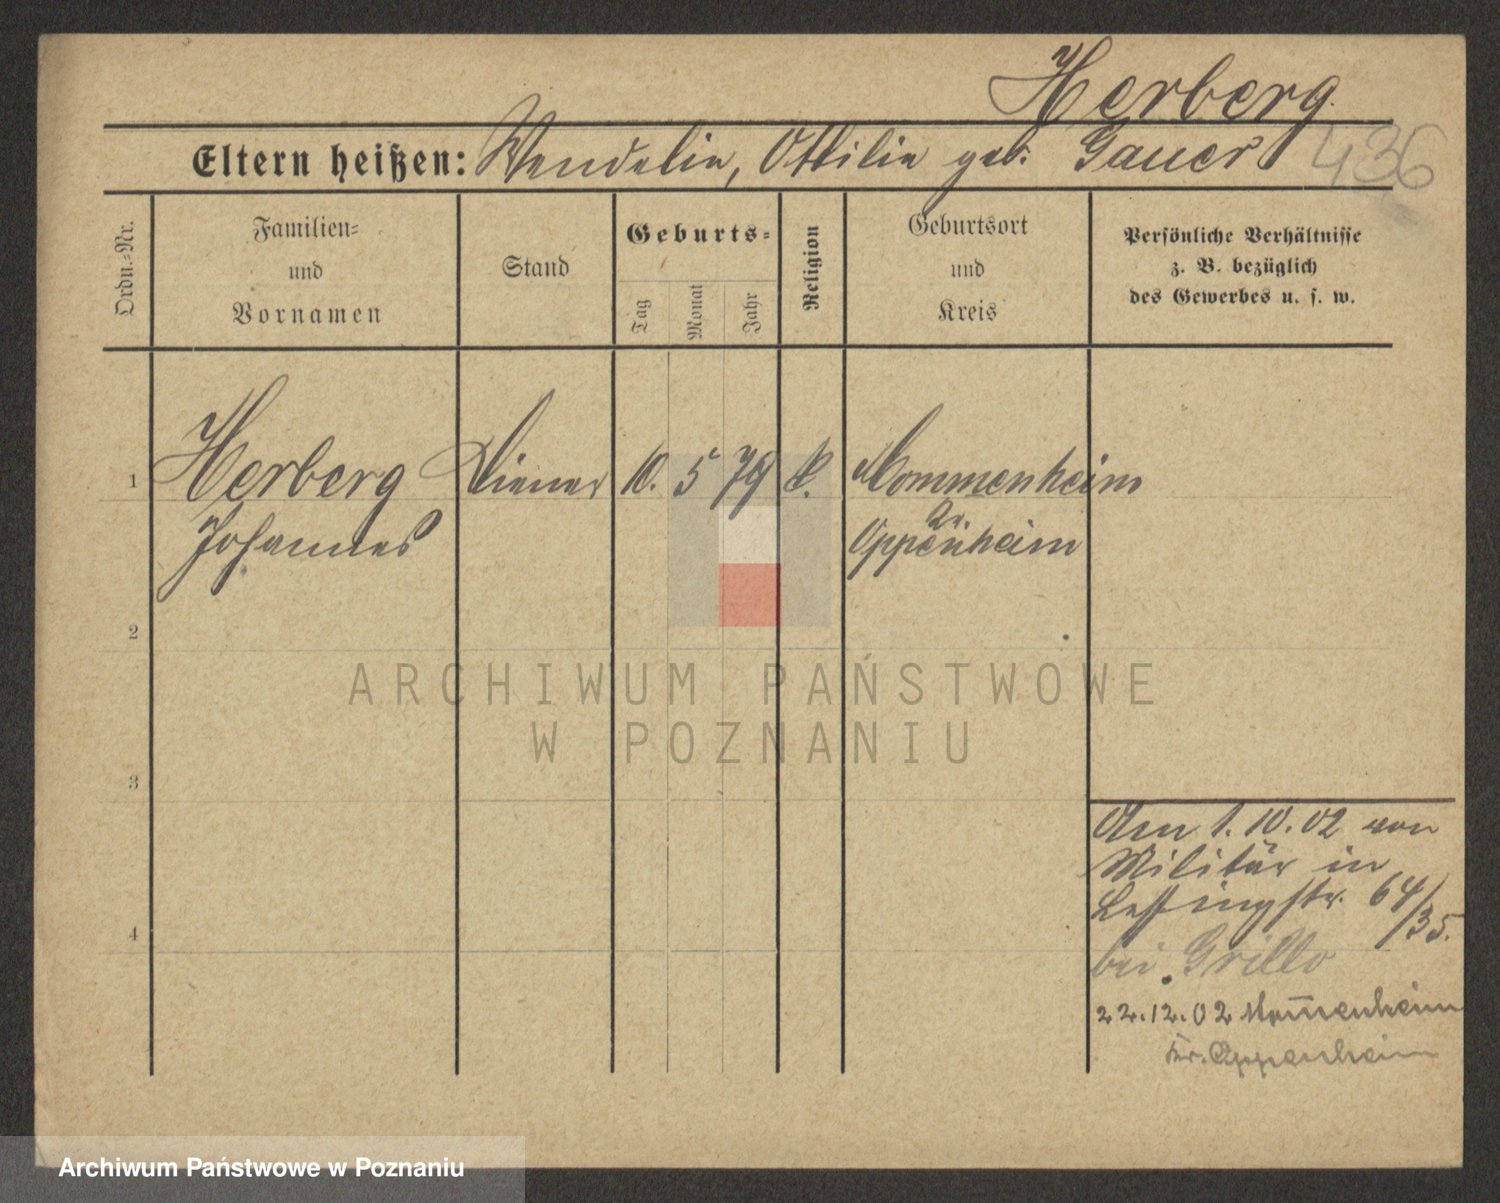 Herberg.
Eltern heißen: Wendelin, Ottilie geb. Gauer
436
Ordn.-Nr.
Familien-
und
Vornamen
Stand
Geburts-
Tag
Monat
Jahr
Religion
Geburtsort
und
Kreis
Persönliche Verhältnisse
z. B. bezüglich
des Gewerbes u. s. w.
1 Herberg Diener 10. 5 79 k. Mommenheim
Johannes Kr. Oppenheim
2
3
4
Am 1.10.02 von
Militär in
Lessingstr. 64/35.
bei Grillo
22.12.02 Mom̅enheim
Kr. Oppenheim
ARCHIWUM PAŃSTWOWE
W POZNANIU
Archiwum Państwowe w Poznaniu